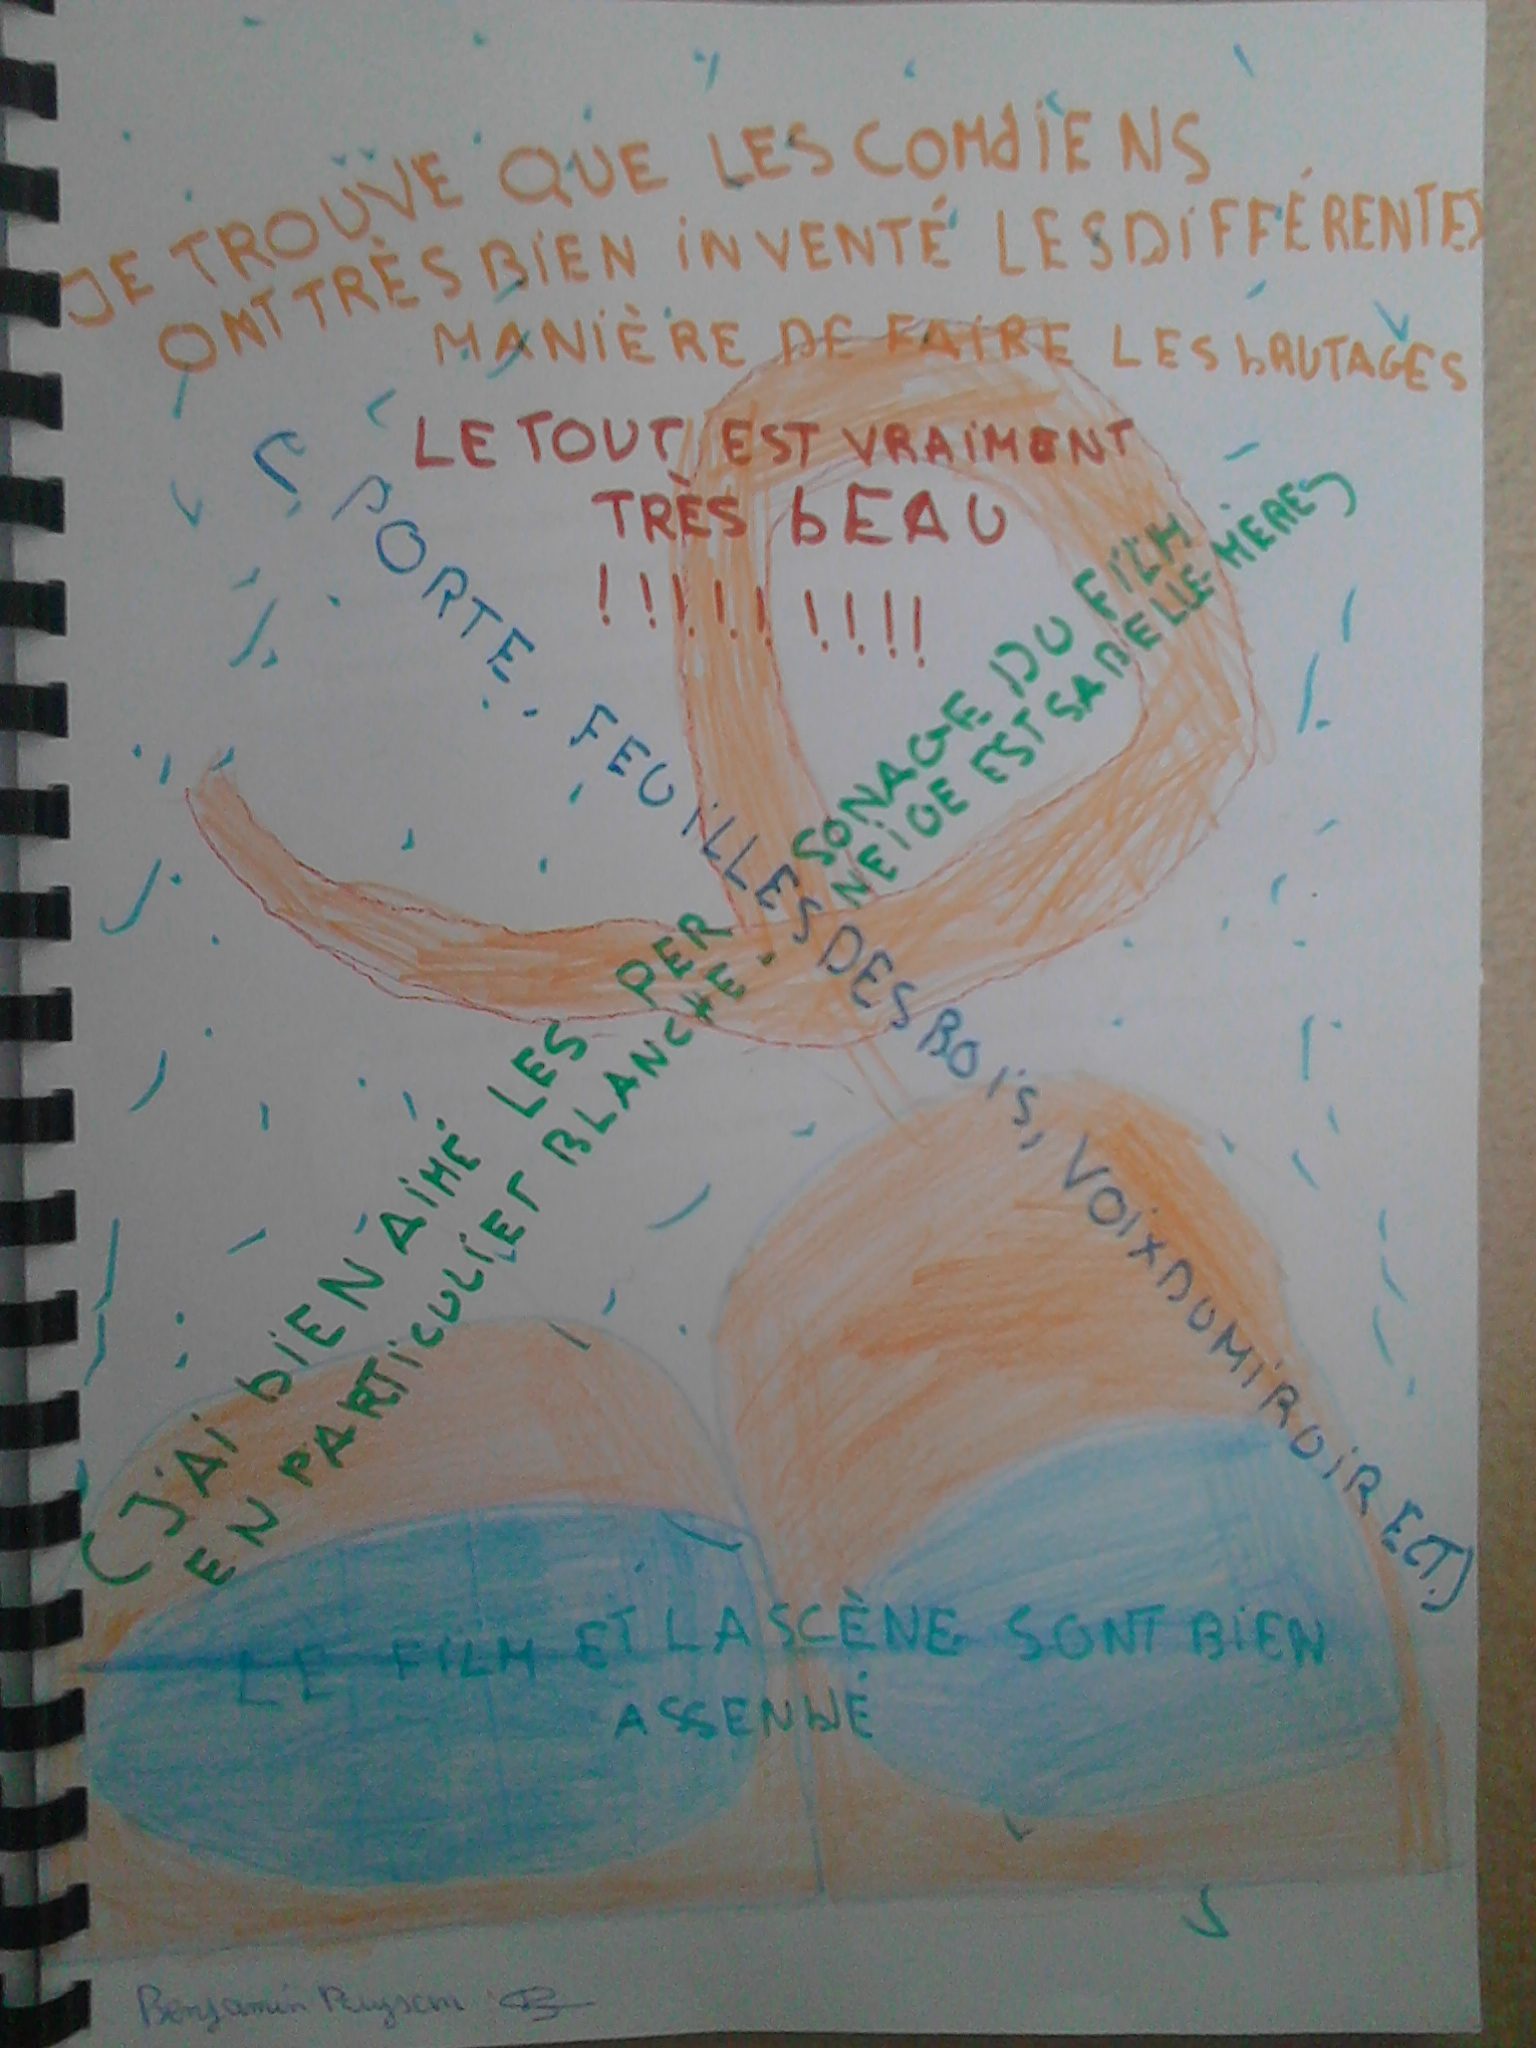 JE TROUVE QUE LES COMdIENS
ONT TRÈS BIEN INVENTÉ LES DIFFÉRENTES
MANIÈRE DE FAIRE LES bRUTAGES
LE TOUT EST VRAIMENT
TRÈS bEAU
!!!!!! !!!!
( PORTE, FEUILLES DES BOIS, VOIX DU MIROIR ECT)
(J'AI bIEN AIMÉ LES PERSONAGE DU FILM
EN PARTICULIER BLANCHE NEIGE EST SA BELLE MÈRE)
LE FILM ET LA SCÈNE SONT BIEN
ASSEMblÉ
Benjamin